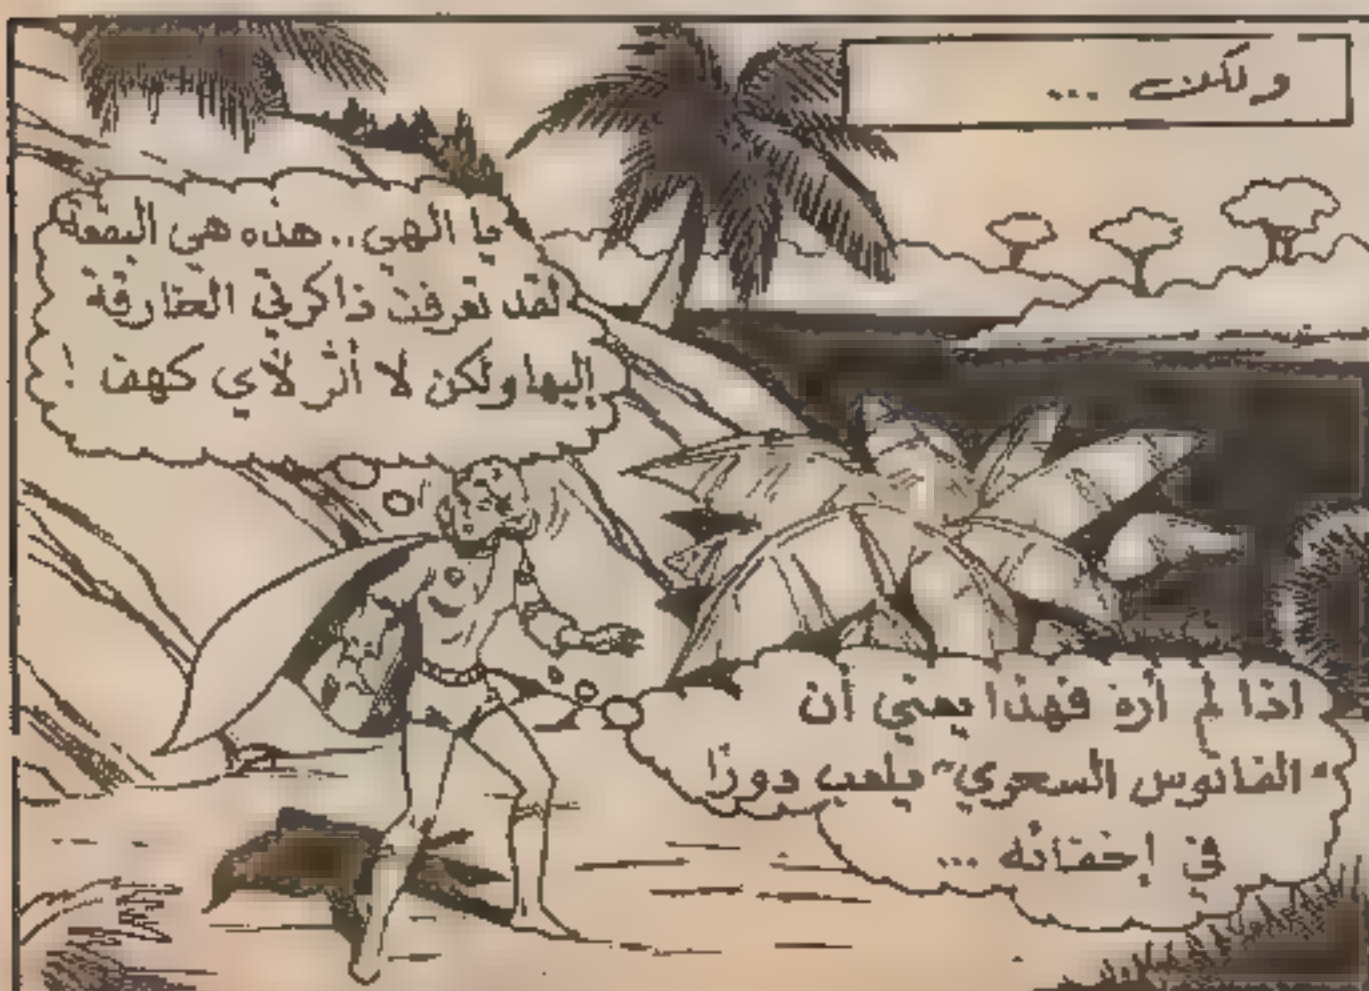 ولكن ...
يا الهي.. هذه هي البقعة
لقد تعرفت ذاكرتي الخارقة
إليها ولكن لا أثر لأي كهف !
اذا لم أره فهذا يعني أن
"الفانوس السحري" يلعب دورًا
في إخفائه ...